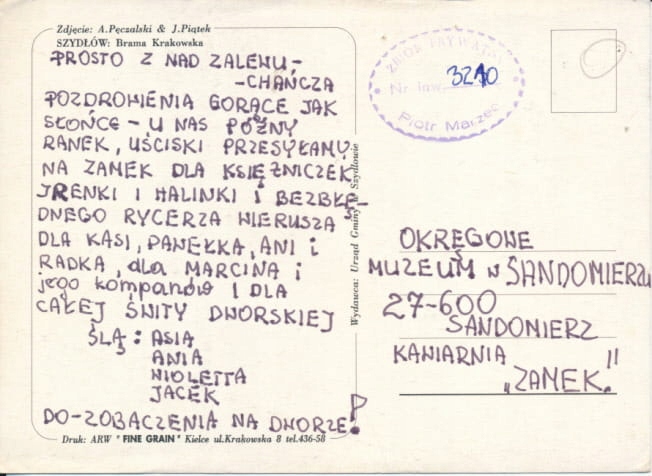 Zdjęcie: A.Pęczalski & J.Piątek
SZYDŁÓW: Brama Krakowska
PROSTO Z NAD ZALEWU -
- CHAŃCZA
POZDROWIENIA GORĄCE JAK
SŁOŃCE - U NAS PÓŹNY
RANEK, UŚCISKI PRZESYŁAMY
NA ZAMEK DLA KSIĘŻNICZEK
IRENKI I HALINKI I BEZBŁĘ-
DNEGO RYCERZA WIERUSZA
DLA KASI, PAWEŁKA, ANI i
RADKA, dla MARCINA i
jego kompanów I DLA
CAŁEJ ŚWITY DWORSKIEJ
ŚLĄ: ASIA
ANIA
WIOLETTA
JACEK
DO-ZOBACZENIA NA DWORZE!
Druk: ARW "FINE GRAIN" Kielce ul.Krakowska 8 tel.436-58
Wydawca: Urząd Gminy w Szydłowie
ZBIÓR PRYWATNY
Nr inw. 3210
Piotr Marzec
OKRĘGOWE
MUZEUM W SANDOMIERZU
27-600
SANDOMIERZ
KAWIARNIA
„ZAMEK."